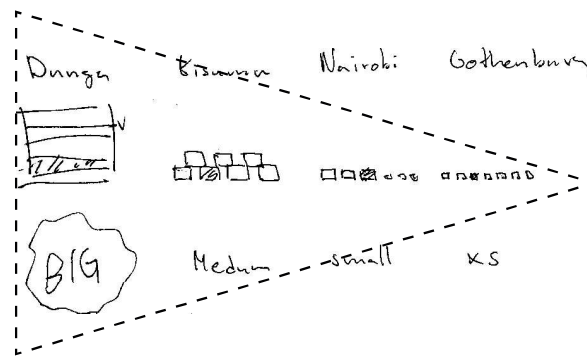 Dunga Kisumu Nairobi Gothenburg
BIG Medium small XS